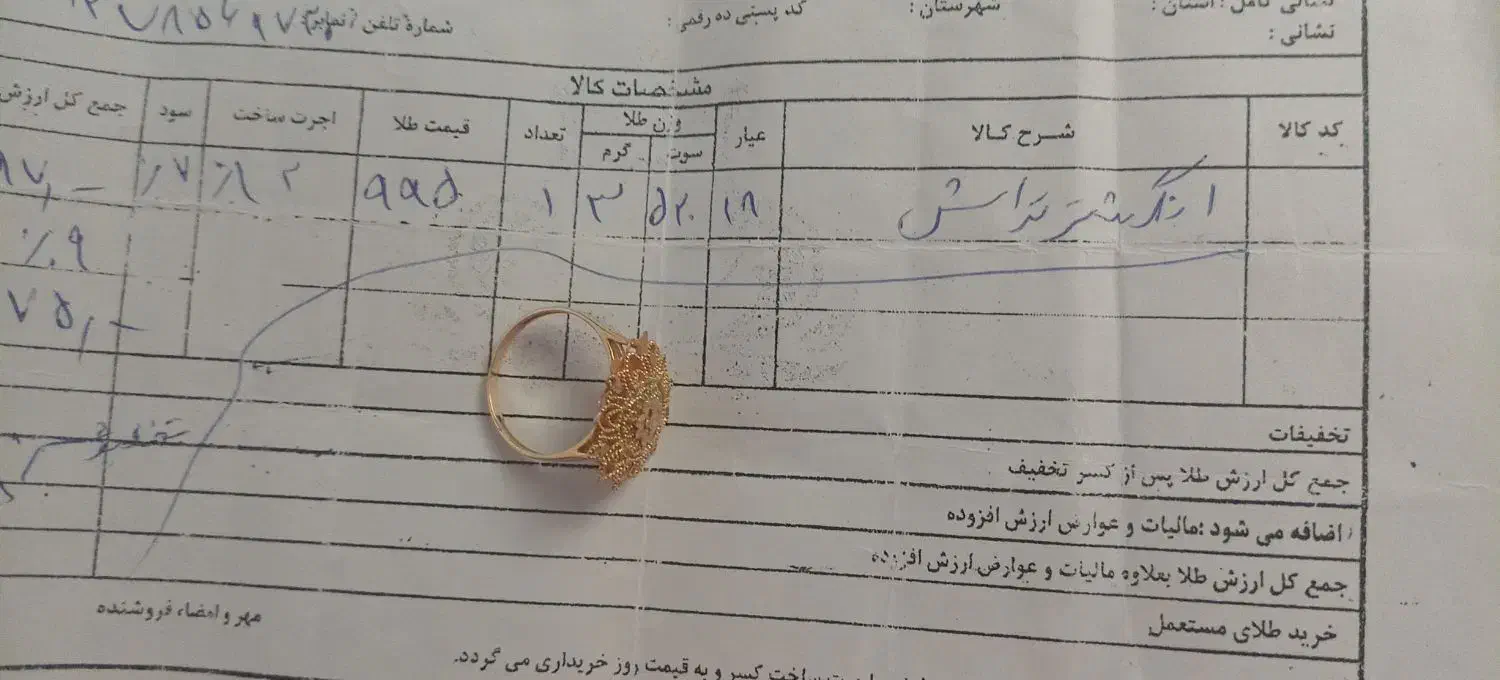 نشانی کامل : استان : شهرستان : کد پستی ده رقمی : شمارهٔ تلفن / نمابر :
نشانی :
مشخصات کالا
کد کالا شرح کالا عیار وزن طلا تعداد قیمت طلا اجرت ساخت سود جمع کل ارزش
سوت گرم
انگشتر تراش ۱۸ ۵۲۰ ۳ ۱ ۹۹۵۰ ٪۷
٪۹
۷۵,-
تخفیفات
تخفیف
جمع کل ارزش طلا پس از کسر تخفیف
اضافه می شود :مالیات و عوارض ارزش افزوده
جمع کل ارزش طلا بعلاوه مالیات و عوارض ارزش افزوده
خرید طلای مستعمل
مهر و امضاء فروشنده
ساخت کسر و به قیمت روز خریداری می گردد.